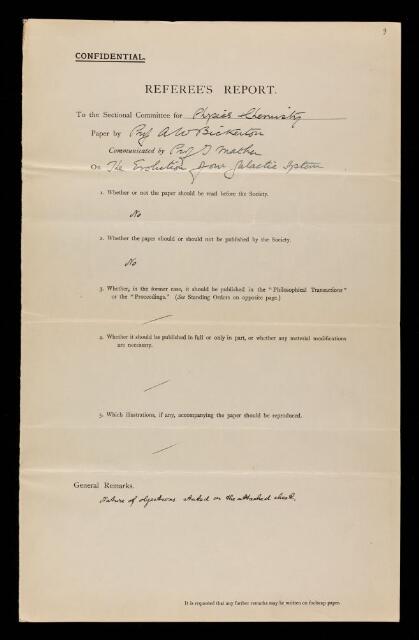 9
CONFIDENTIAL.
REFEREE'S REPORT.
To the Sectional Committee for Physics & Chemistry
Paper by Prof A W Bickerton
Communicated by Prof T Mather
On The Evolution of our Galactic System
1. Whether or not the paper should be read before the Society.
No
2. Whether the paper should or should not be published by the Society.
No
3. Whether, in the former case, it should be published in the "Philosophical Transactions"
or the "Proceedings." (See Standing Orders on opposite page.)
4. Whether it should be published in full or only in part, or whether any material modifications
are necessary.
5. Which illustrations, if any, accompanying the paper should be reproduced.
General Remarks.
Nature of objections stated on the attached sheet.
It is requested that any further remarks may be written on foolscap paper.